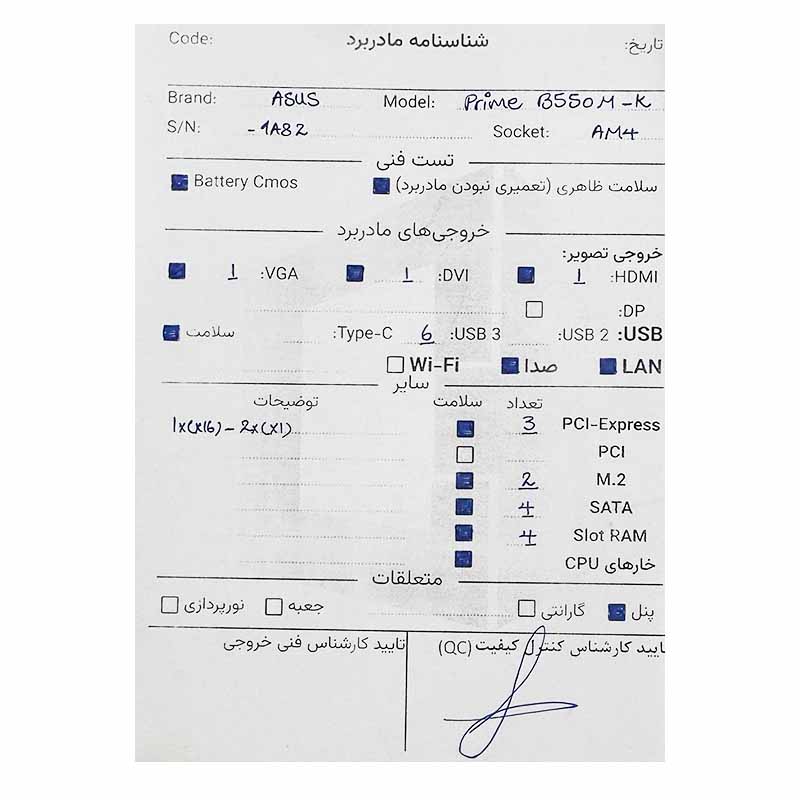 Code: شناسنامه مادربرد تاریخ:
Brand: ASUS Model: Prime B550M-K
S/N: -1A82 Socket: AM4
تست فنی
سلامت ظاهری (تعمیری نبودن مادربرد) Battery Cmos
خروجی‌های مادربرد
خروجی تصویر:
HDMI: 1 DVI: 1 VGA: 1
DP:
USB: USB 2: USB 3: 6 Type-C: سلامت
LAN صدا Wi-Fi
سایر
تعداد سلامت توضیحات
PCI-Express 3 1x(x16) - 2x(x1)
PCI
M.2 2
SATA 4
Slot RAM 4
خارهای CPU
متعلقات
پنل گارانتی جعبه نورپردازی
تایید کارشناس کنترل کیفیت (QC) تایید کارشناس فنی خروجی